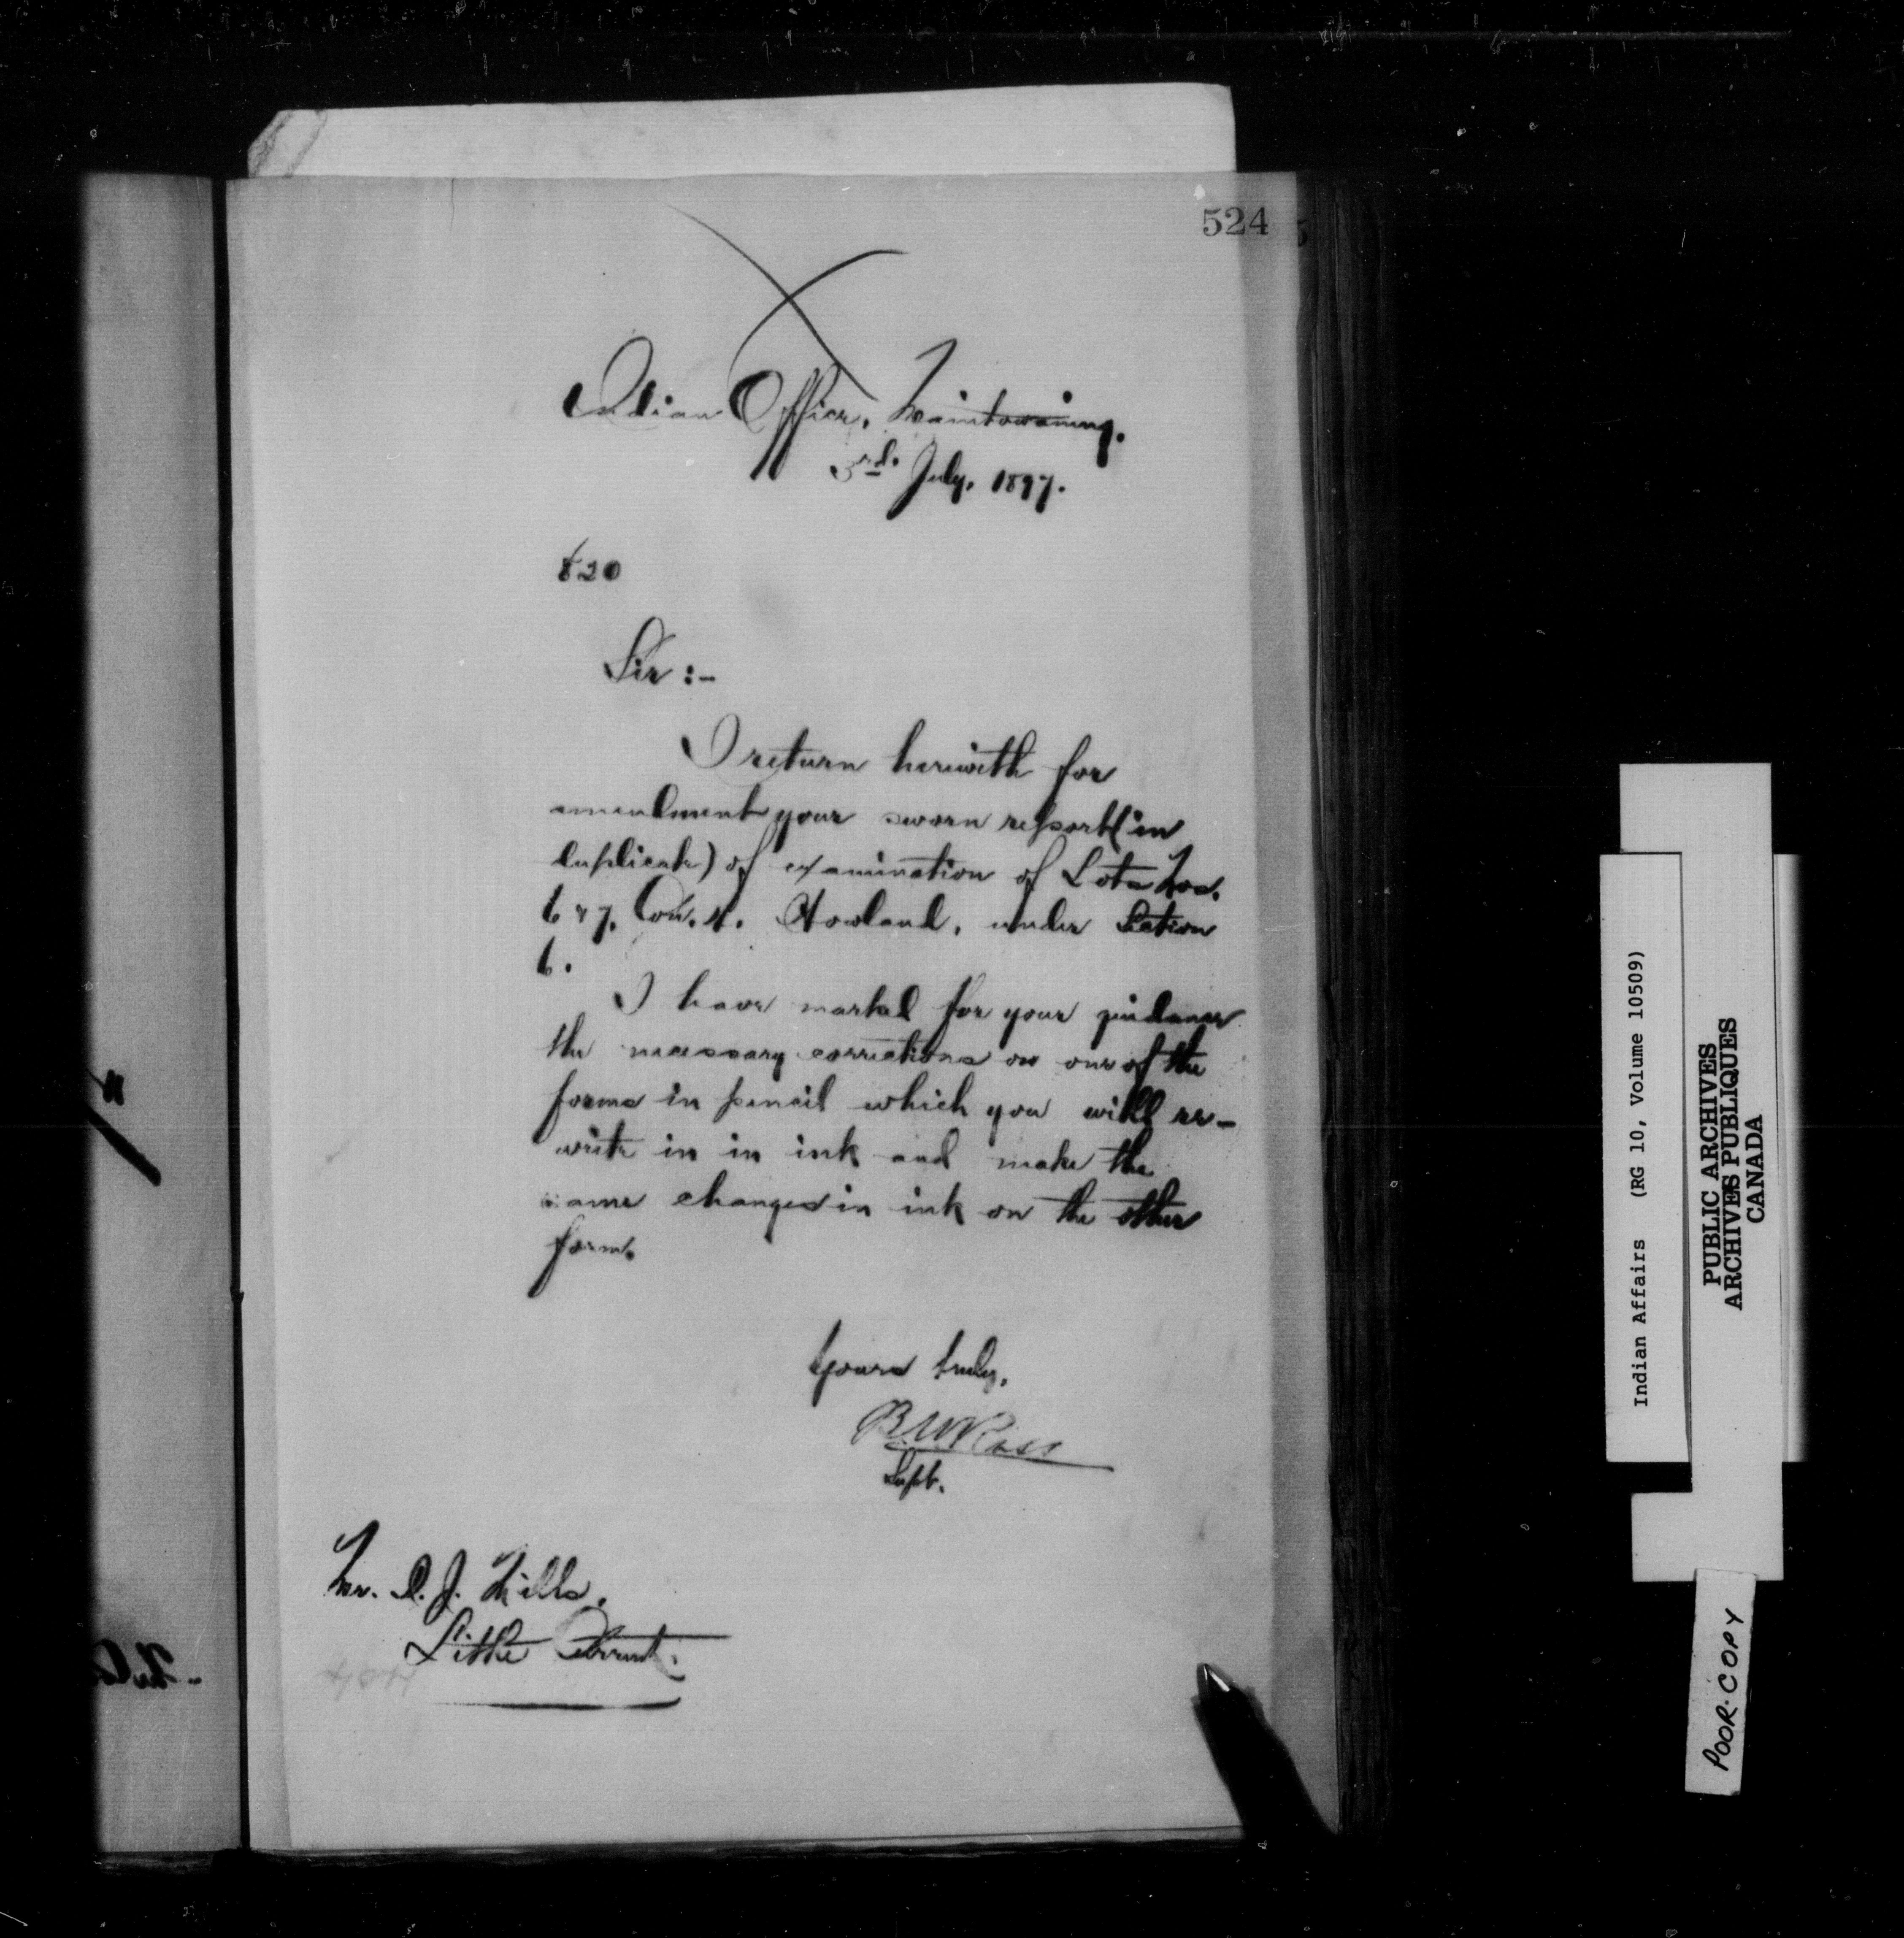 524
Indian Office, Manitowaning.
3rd. July, 1897.
820
Sir :-
I return herewith for
amendment your sworn report (in
duplicate) of examination of Lots Nos.
6 & 7, Con. 4. Howland, under Section
6.
I have marked for your guidance
the necessary corrections on one of the
forms in pencil which you will re-
write in in ink and make the
same changes in ink on the other
form.
Yours truly,
B W Ross
Supt.
Mr. D. J. Mills,
Little Current.
Indian Affairs (RG 10, Volume 10509)
PUBLIC ARCHIVES
ARCHIVES PUBLIQUES
CANADA
POOR COPY